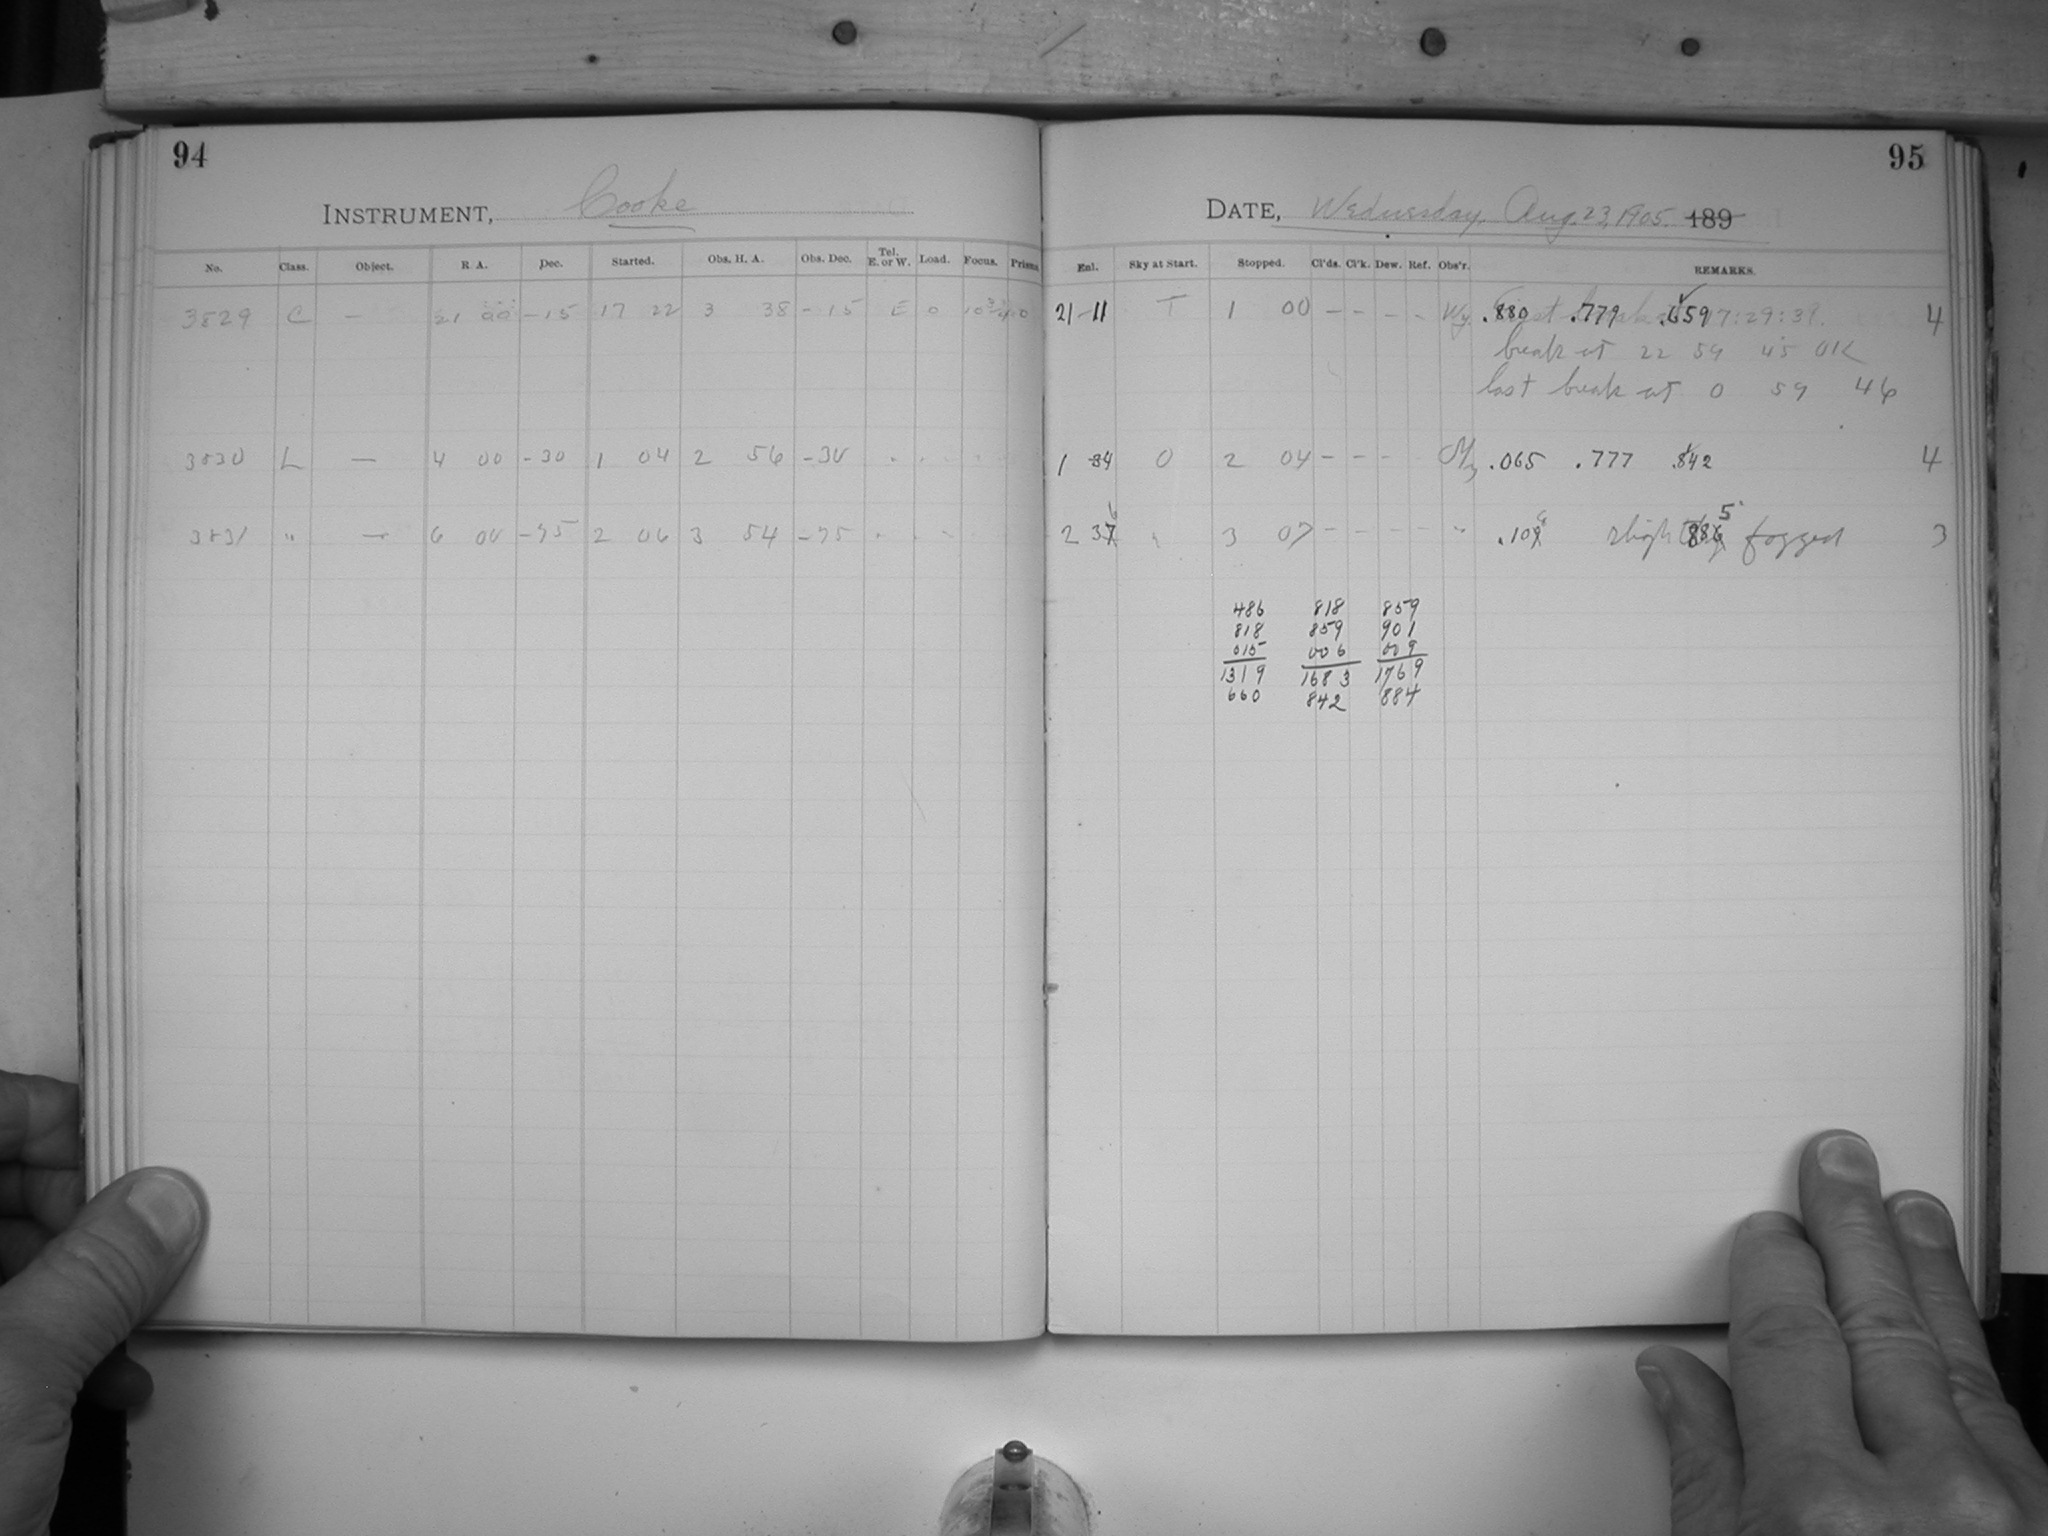 94
INSTRUMENT, Cooke
No. Class. Object. R A. Dec. Started. Obs. H. A. Obs. Dec. Tel. E. or W. Load. Focus. Prisms
3829 C — 21 00 -15 17 22 3 38 -15 E 0 10
3830 L — 4 00 -30 1 04 2 56 -30
3831 " — 6 00 -75 2 06 3 54 -75
95
DATE, Wednesday, Aug. 23, 1905. 189
Enl. Sky at Start. Stopped. Cl'ds. Cl'k. Dew. Ref. Obs'r. REMARKS.
21-11 T 1 00 - - - - Wy. .880 .779 .659 First break at 17:29:39. 4
break at 22 59 45 OK
last break at 0 59 46
1 84 0 2 04 - - - .065 .777 .842 4
2 37 6 " 3 07 - - - - " .109 slightly fogged 5 3
486 818 859
818 859 901
015 006 009
1319 1683 1769
660 842 884